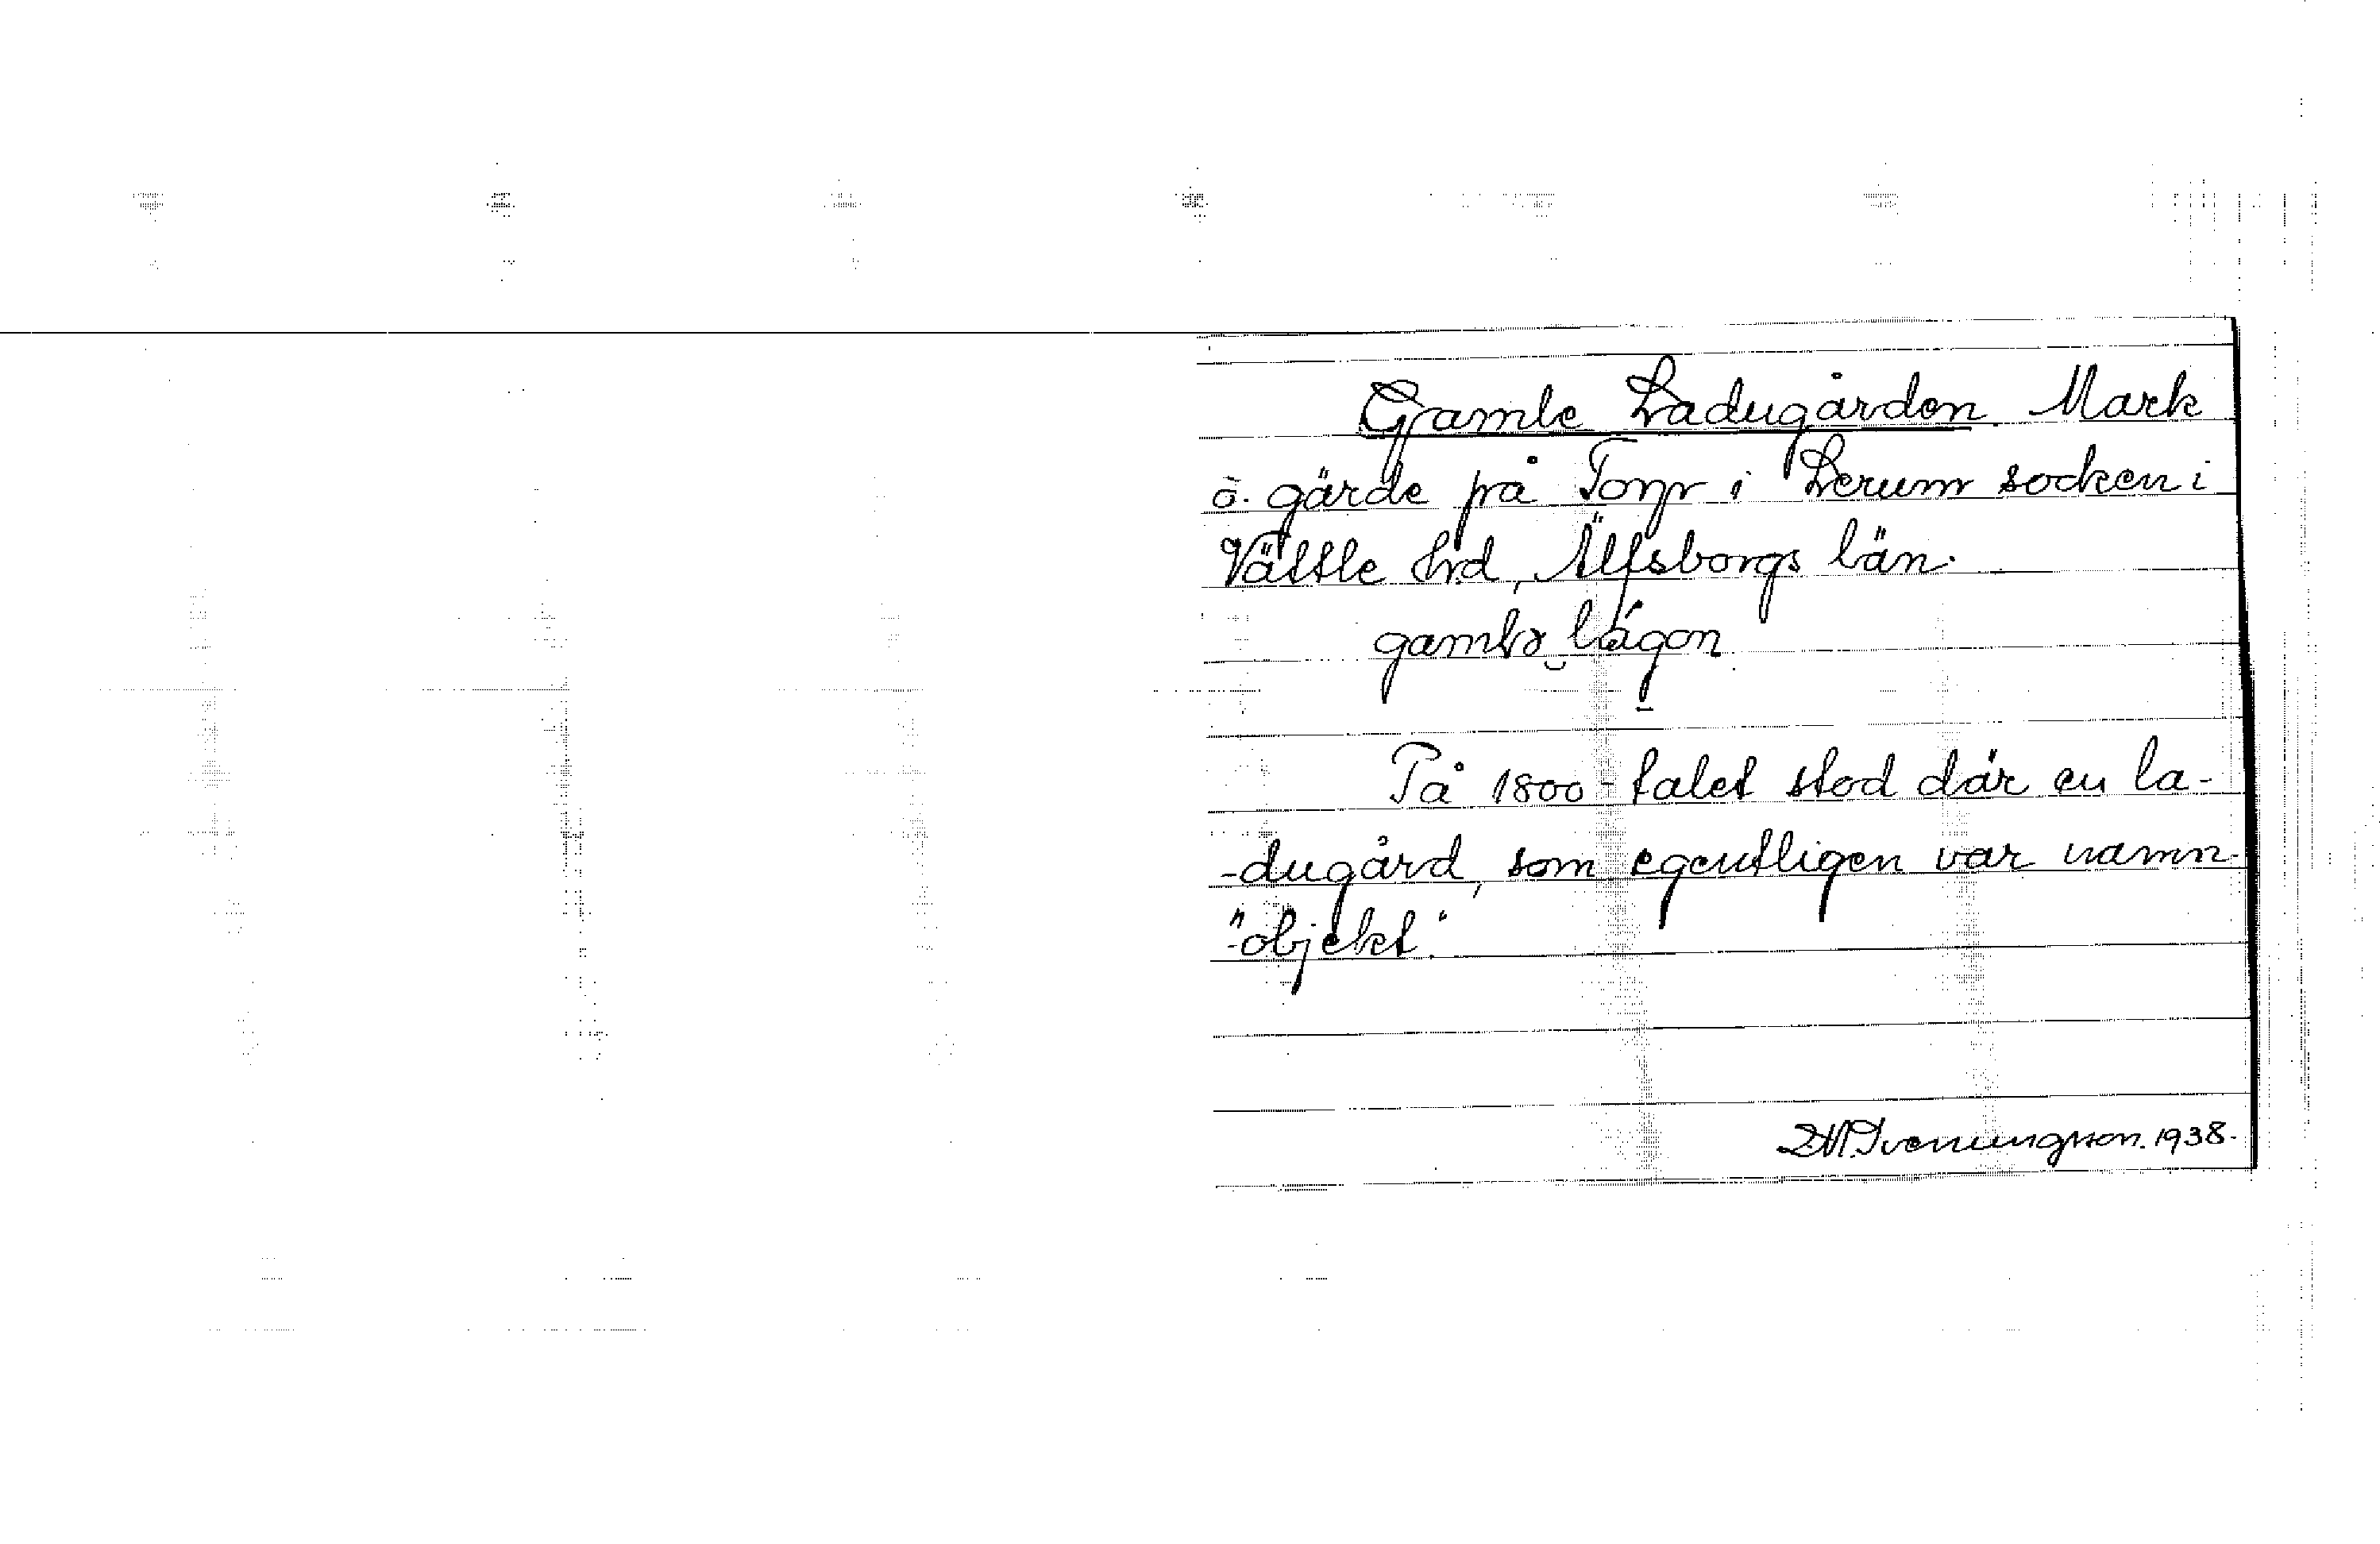 Gamle Ladugården. Mark
å gärde på Torp i Lerum socken i
Vättle hrd, Älfsborgs län.
gamlə lágon
På 1800-talet stod där en la-
-dugård, som egentligen var namn-
"objekt".
1938.